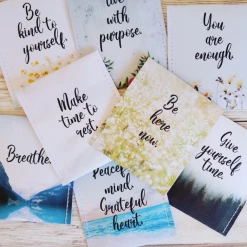 Be
kind to
yourself.
live
with
purpose.
You
are
enough.
Make
time to
rest.
Be
here
now.
Breathe.
Give
yourself
time.
Peaceful
mind
Grateful
heart.